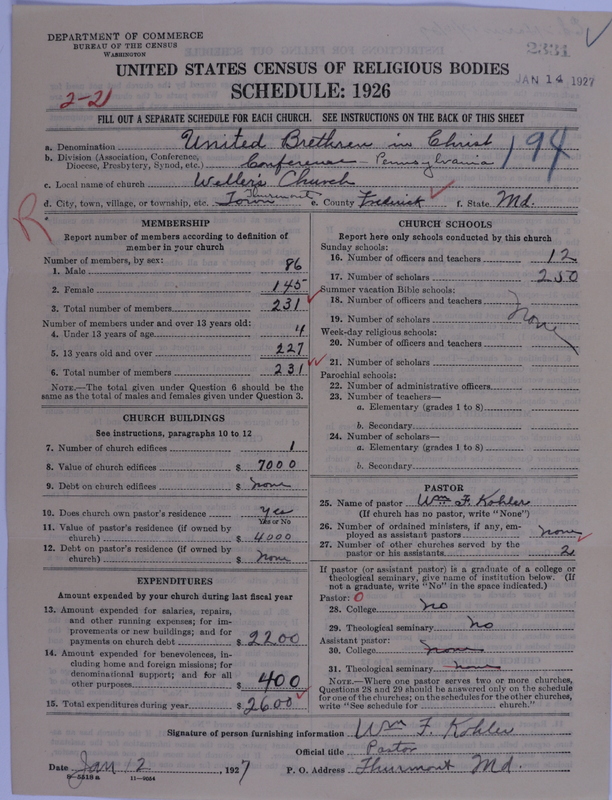 DEPARTMENT OF COMMERCE
BUREAU OF THE CENSUS
WASHINGTON
1332
JAN 14 1927
UNITED STATES CENSUS OF RELIGIOUS BODIES
SCHEDULE: 1926
2-21
FILL OUT A SEPARATE SCHEDULE FOR EACH CHURCH. SEE INSTRUCTIONS ON THE BACK OF THIS SHEET
a. Denomination United Brethren in Christ
194
b. Division (Association, Conference, Diocese, Presbytery, Synod, etc.) Conference Pennsylvania
c. Local name of church Weller's Church
d. City, town, village, or township, etc. Town Thurmont e. County Frederick f. State Md.
R
MEMBERSHIP
Report number of members according to definition of
member in your church
Number of members, by sex:
1. Male 86
2. Female 145
3. Total number of members 231
Number of members under and over 13 years old:
4. Under 13 years of age 4
5. 13 years old and over 227
6. Total number of members 231
NOTE.—The total given under Question 6 should be the
same as the total of males and females given under Question 3.
CHURCH BUILDINGS
See instructions, paragraphs 10 to 12
7. Number of church edifices 1
8. Value of church edifices $ 7000
9. Debt on church edifices $ none
10. Does church own pastor's residence yes
Yes or No
11. Value of pastor's residence (if owned by
church) $ 4000
12. Debt on pastor's residence (if owned by
church) $ none
EXPENDITURES
Amount expended by your church during last fiscal year
13. Amount expended for salaries, repairs,
and other running expenses; for im-
provements or new buildings; and for
payments on church debt $ 2200
14. Amount expended for benevolences, in-
cluding home and foreign missions; for
denominational support; and for all
other purposes $ 400
15. Total expenditures during year $ 2600
CHURCH SCHOOLS
Report here only schools conducted by this church
Sunday schools:
16. Number of officers and teachers 12
17. Number of scholars 250
Summer vacation Bible schools:
18. Number of officers and teachers
19. Number of scholars none
Week-day religious schools:
20. Number of officers and teachers
21. Number of scholars
Parochial schools:
22. Number of administrative officers
23. Number of teachers—
a. Elementary (grades 1 to 8)
b. Secondary
24. Number of scholars—
a. Elementary (grades 1 to 8)
b. Secondary
PASTOR
25. Name of pastor Wm F. Kohler
(If church has no pastor, write "None")
26. Number of ordained ministers, if any, em-
ployed as assistant pastors none
27. Number of other churches served by the
pastor or his assistants 2
If pastor (or assistant pastor) is a graduate of a college or
theological seminary, give name of institution below. (If
not a graduate, write "No" in the space indicated.)
Pastor: 0
28. College no
29. Theological seminary no
Assistant pastor:
30. College none
31. Theological seminary none
NOTE.—Where one pastor serves two or more churches,
Questions 28 and 29 should be answered only on the schedule
for one of the churches; on the schedules for the other churches,
write "See schedule for church."
Signature of person furnishing information Wm F. Kohler
Official title Pastor
Date Jan 12, 1927 P. O. Address Thurmont Md.
11-9054